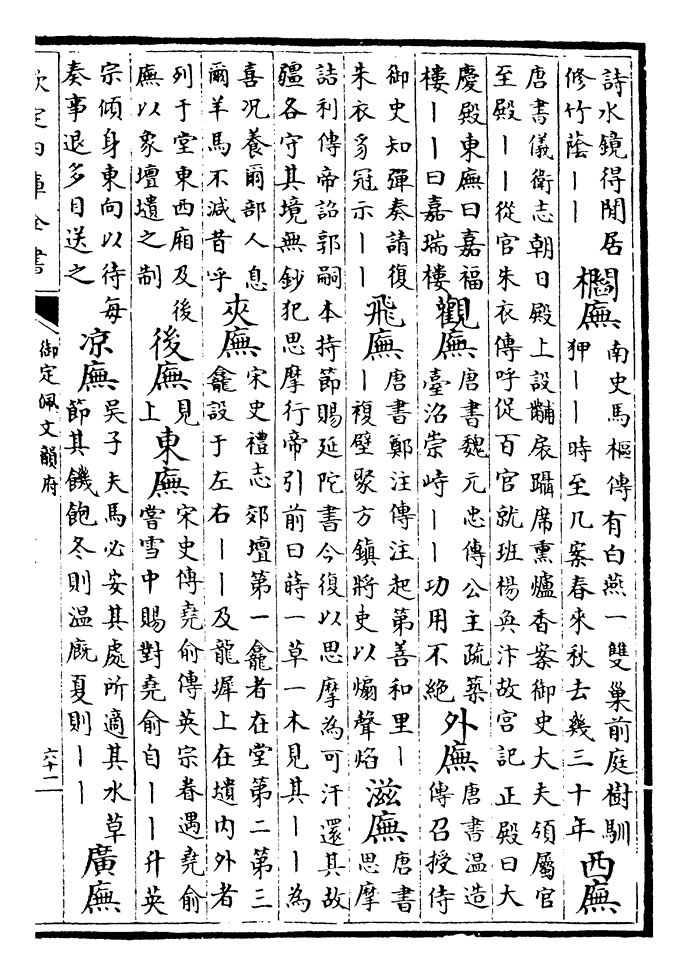 詩水鏡得閒居
修竹蔭丨丨
櫩廡
南史馬樞傳有白燕一雙巢前庭樹馴
狎丨丨時至几案春來秋去幾三十年
西廡
唐書儀衛志朝日殿上設黼扆躡席熏爐香案御史大夫領屬官
至殿丨丨從官朱衣傳呼促百官就班楊奐汴故宮記正殿曰大
慶殿東廡曰嘉福
樓丨丨曰嘉瑞樓
觀廡
唐書魏元忠傳公主疏築
臺沼崇峙丨丨功用不絶
外廡
唐書温造
傳召授侍
御史知彈奏請復
朱衣豸冠示丨丨
飛廡
唐書鄭注傳注起第善和里丨
丨複壁聚方鎮將吏以煽聲焰
滋廡
唐書
思摩
詰利傳帝詔郭嗣本持節賜延陀書今復以思摩為可汗還其故
疆各守其境無鈔犯思摩行帝引前曰蒔一草一木見其丨丨為
喜况養爾部人息
爾羊馬不減昔乎
夾廡
宋史禮志郊壇第一龕者在堂第二第三
龕設于左右丨丨及龍墀上在壝内外者
列于堂東西廂及後
廡以象壇壝之制
後廡
見
上
東廡
宋史傳堯俞傳英宗眷遇堯俞
嘗雪中賜對堯俞自丨丨升英
宗傾身東向以待每
奏事退多目送之
凉廡
吳子夫馬必安其處所適其水草
節其饑飽冬則温廐夏則丨丨
廣廡
欽定四庫全書
御定佩文韻府
六十二